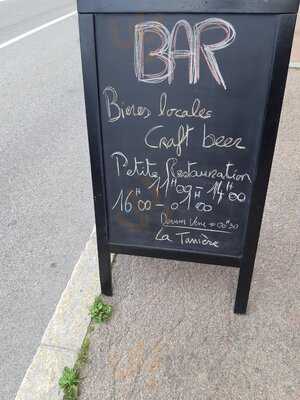 BAR
Bieres locales
Craft beer
Petite Restauration
11H00 - 14H00
16H00 - 01H00
= 00H30
La Tanière